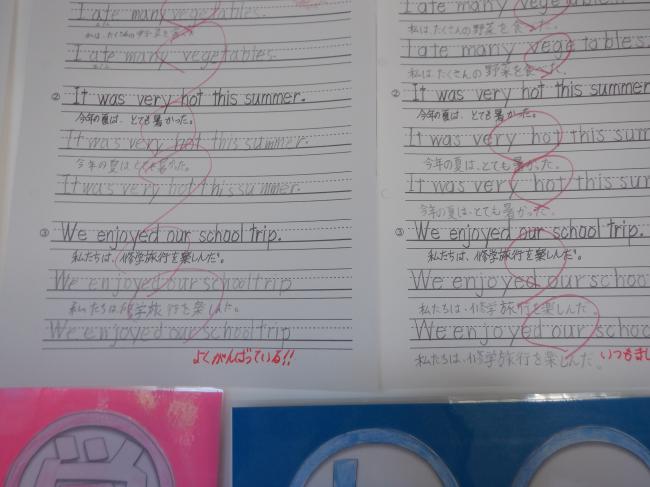 I ate many vegetables.
私は、たくさんの野菜を食べた。
I ate many vegetables.
② It was very hot this summer.
今年の夏は、とても暑かった。
It was very hot this summer.
今年の夏はとても暑かった。
It was very hot this summer.
③ We enjoyed our school trip.
私たちは、修学旅行を楽しんだ。
We enjoyed our school trip
私たちは修学旅行を楽しんだ。
We enjoyed our school trip
よくがんばっている!!
many vegetables.
私はたくさんの野菜を食べた。
I ate many vegetables.
私はたくさんの野菜を食べた。
② It was very hot this summer.
今年の夏は、とても暑かった。
It was very hot this sum
今年の夏は、とても暑かった。
It was very hot this sum
今年の夏は、とても暑かった。
③ We enjoyed our school trip.
私たちは、修学旅行を楽しんだ。
We enjoyed our schoo
私たちは、修学旅行を楽しんだ。
We enjoyed our schoo
私たちは、修学旅行を楽しんだ。
いつもまし